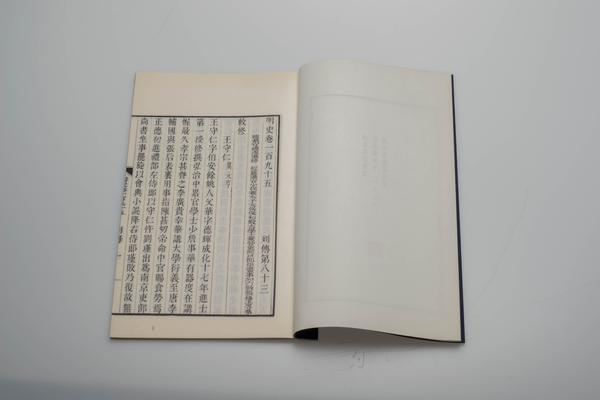 明史卷一百九十五 列傳第八十三
敕修
王守仁 冀元亨
王守仁字伯安餘姚人父華字德輝成化十七年進士
第一授修撰弘治中累官學士少詹事華有器度在講
幄最久孝宗甚眷之李廣貴幸華講大學衍義至唐李
輔國與張后表裏用事指陳甚切帝命中官賜食勞焉
正德初進禮部左侍郎以守仁忤劉瑾出爲南京吏部
尚書坐事罷旋以會典小誤降右侍郎瑾敗乃復故無